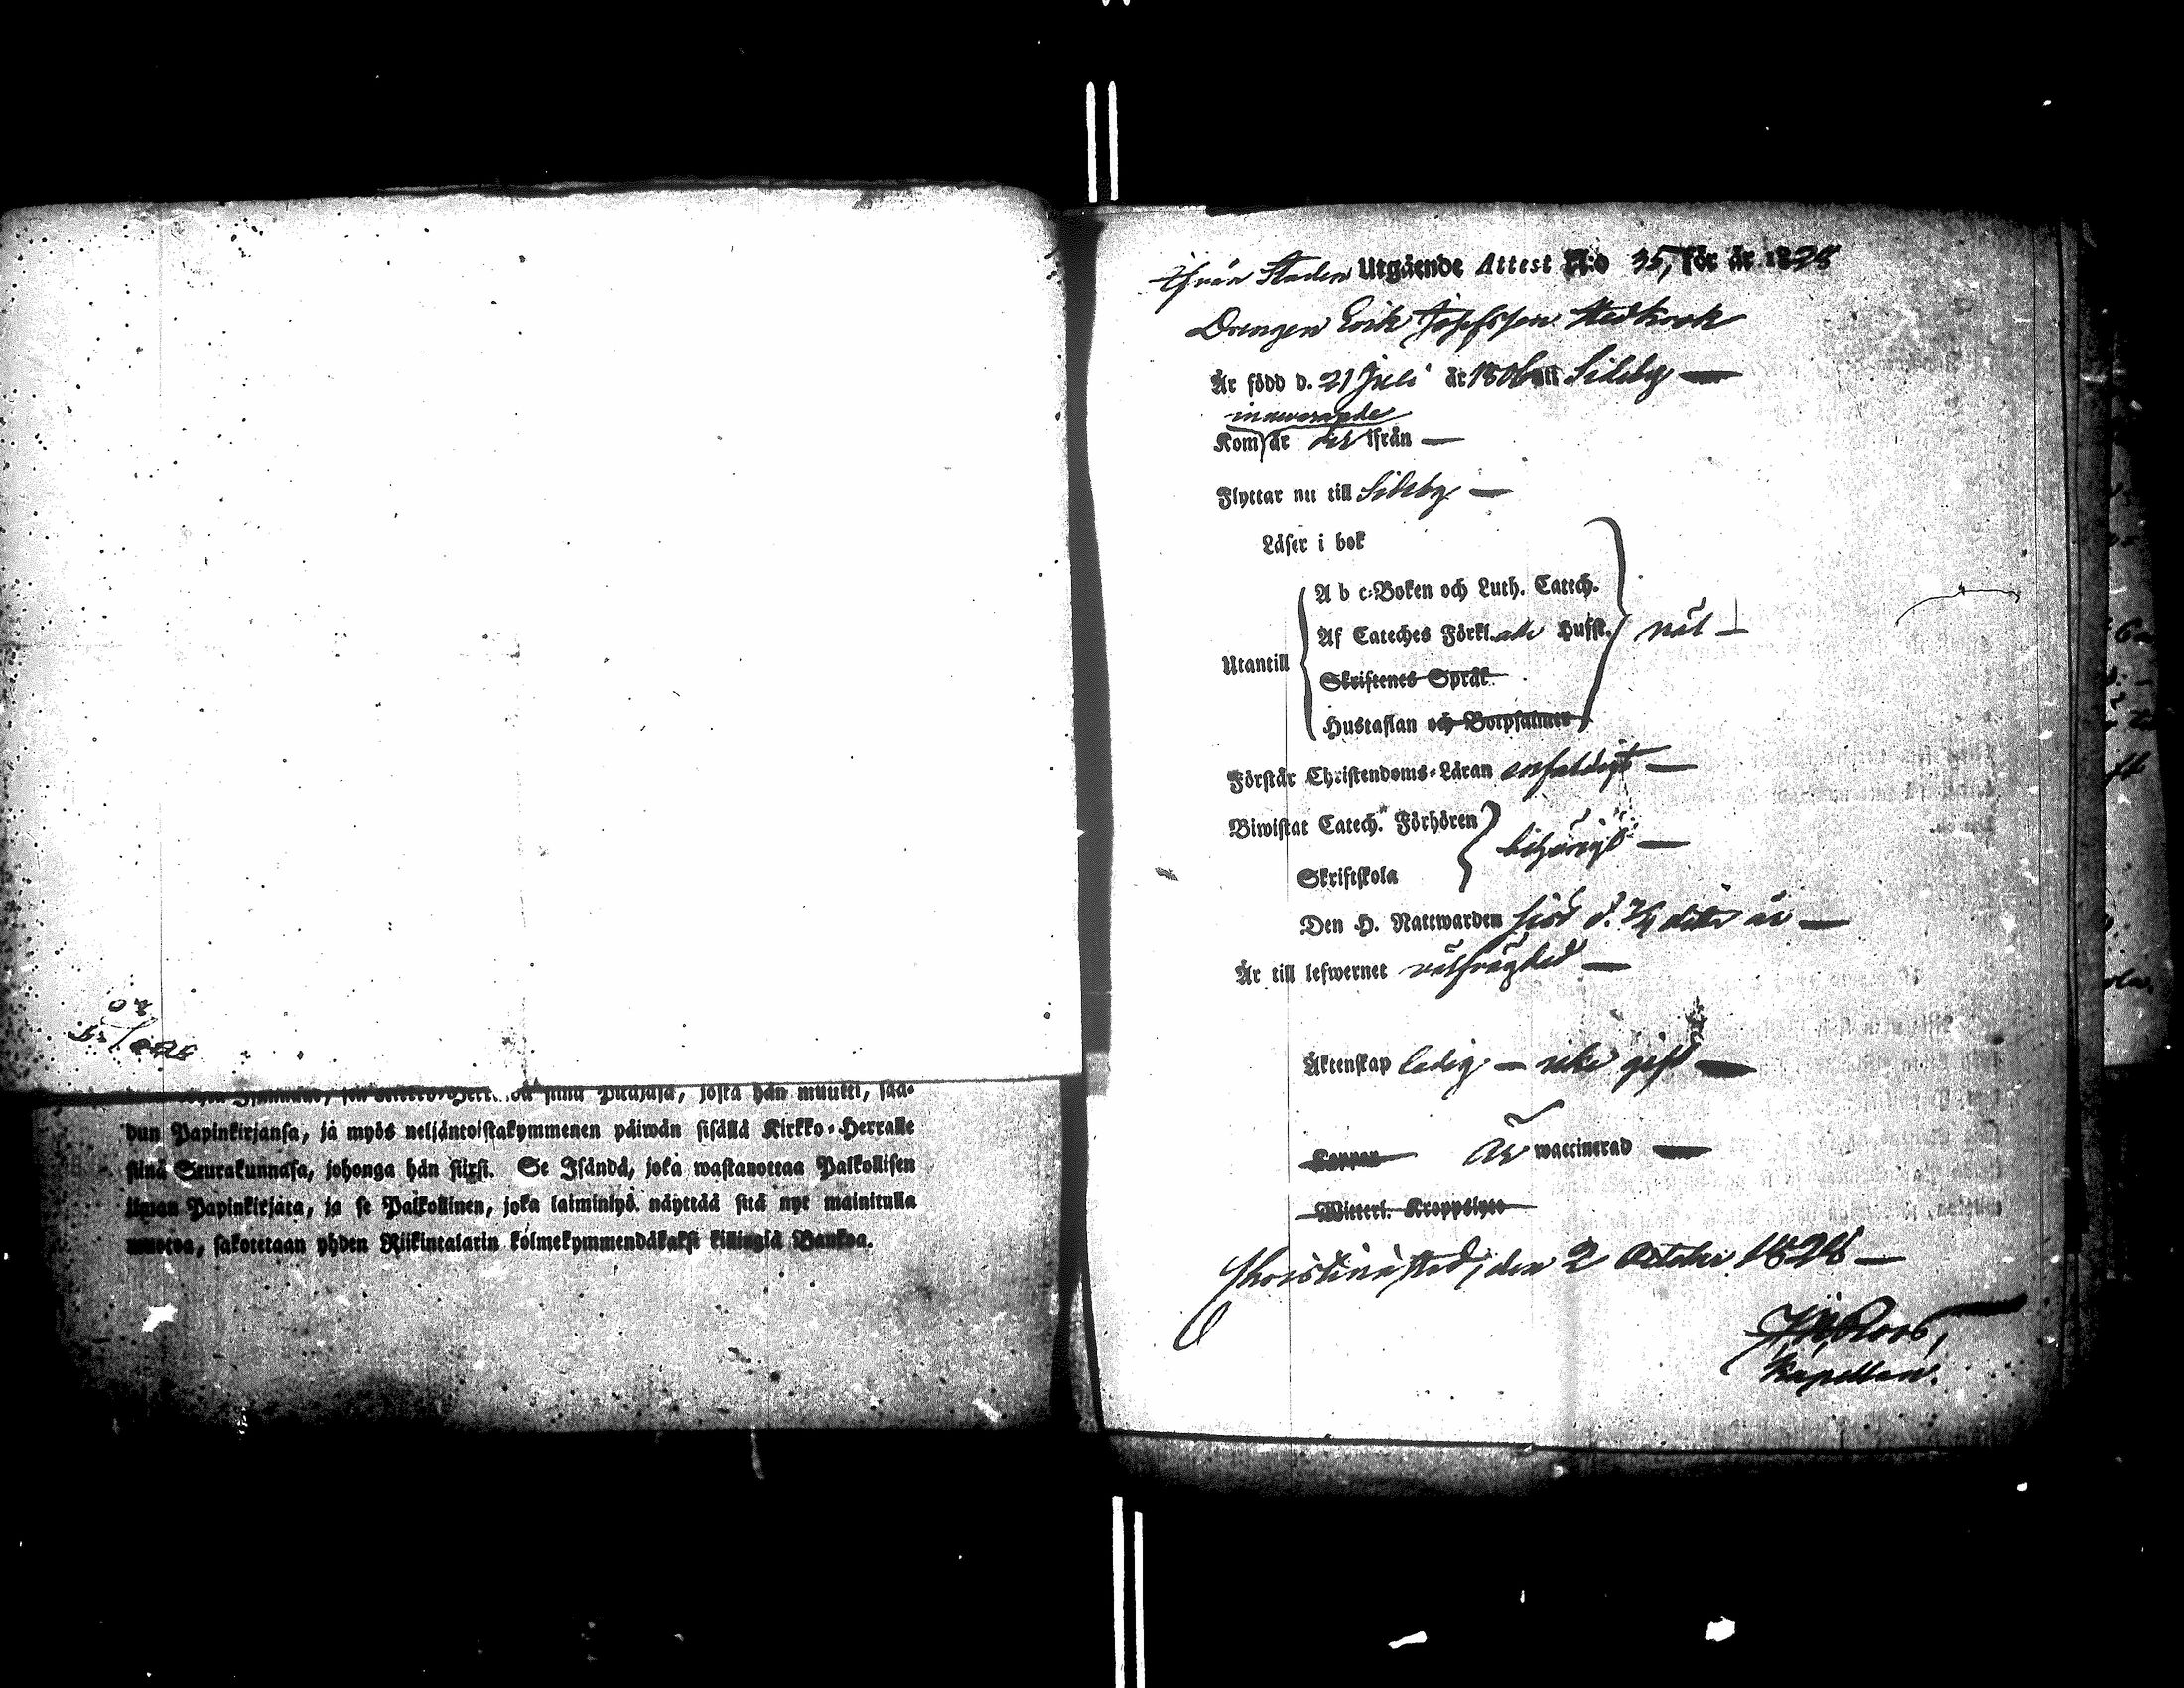 dun Papinkirjansa, ja myös neljäntoistakymmenen päiwän sisällä Kirkko-Herralle
siinä Seurakunnasa, johonga hän siirsi. Se Isändä, joka wastanottaa Palkollisen
ilman Papinkirjata, ja se Palkollinen, joka laiminlyö näyttää sitä nyt mainitulla
muotoa, sakotetaan yhden Riikintalarin kolmekymmendäkaksi killingiä Bankoa.
ifrån Staden Utgående Attest N:o 35, för år 1828
Drengen Erik
Är född d. 21 Juli år 1806 uti Sideby —
innevarande
Kom år ifrån —
Flyttar nu till Sideby —
Läser i bok
Utantill
A b c-Boken och Luth. Catech.
Af Cateches Förkl. Husfl. väl —
Skriftenes Språk
Hustaflan och Botpsalmen
Förstår Christendoms-Läran enfaldigt —
Biwistat Catech. Förhören
Skriftskola
behörigt —
Den H. Nattwarden år —
Är till lefwernet välfrägdad —
Äktenskap ledig — icke gift —
Koppor Är waccinerad —
Witterl. Kroppslyte
Christinæstad, den 2 October 1828 —
Roos,
Kapellan.